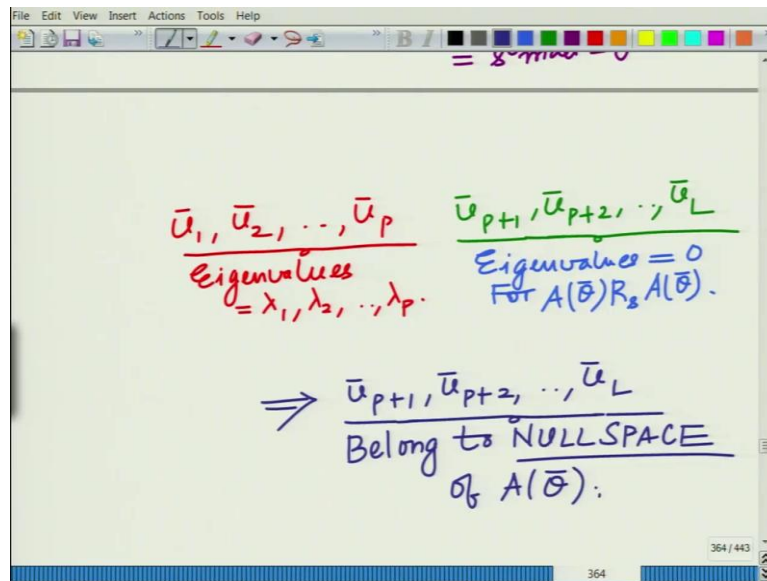 File Edit View Insert Actions Tools Help
B I
ū₁, ū₂, .., ū_P
Eigenvalues
= λ₁, λ₂, .., λ_P.
ū_{P+1}, ū_{P+2}, .., ū_L
Eigenvalues = 0
For A(θ̄)R_s A(θ̄).
⇒ ū_{P+1}, ū_{P+2}, .., ū_L
Belong to NULLSPACE
of A(θ̄).
364 / 443
364